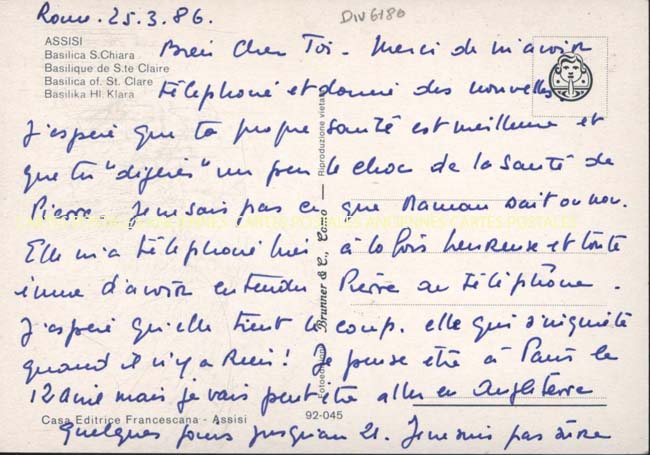 Rome. 25.3.86.
Div 6180
ASSISI
Basilica S.Chiara
Basilique de S.te Claire
Basilica of. St. Clare
Basilika Hl. Klara
Bien Cher Toi - Merci de m'avoir
téléphoné et donné des nouvelles.
J'espère que ta propre santé est meilleure et
que tu "digères" un peu le choc de la santé de
Pierre. Je ne sais pas ce que Maman sait ou non.
Elle m'a téléphoné hier à la fois heureuse et toute
émue d'avoir entendu Pierre au téléphone.
J'espère qu'elle tient le coup. elle qui s'inquiète
quand il n'y a Rien! Je pense être à Paris le
12 avril mais je vais peut être aller en Angleterre
quelques jours jusqu'au 21. Je ne suis pas sûre
CARTES POSTALES ANCIENNES CARTES POSTALES
Fotoedizioni Brunner & C., Como — Riproduzione vietata
Casa Editrice Francescana - Assisi
92-045